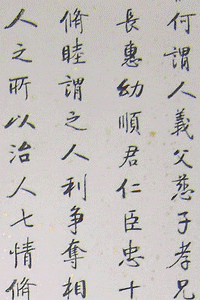 何謂人義父慈子孝兄
長惠幼順君仁臣忠十
脩睦謂之人利争奪相
人之所以治人七情脩